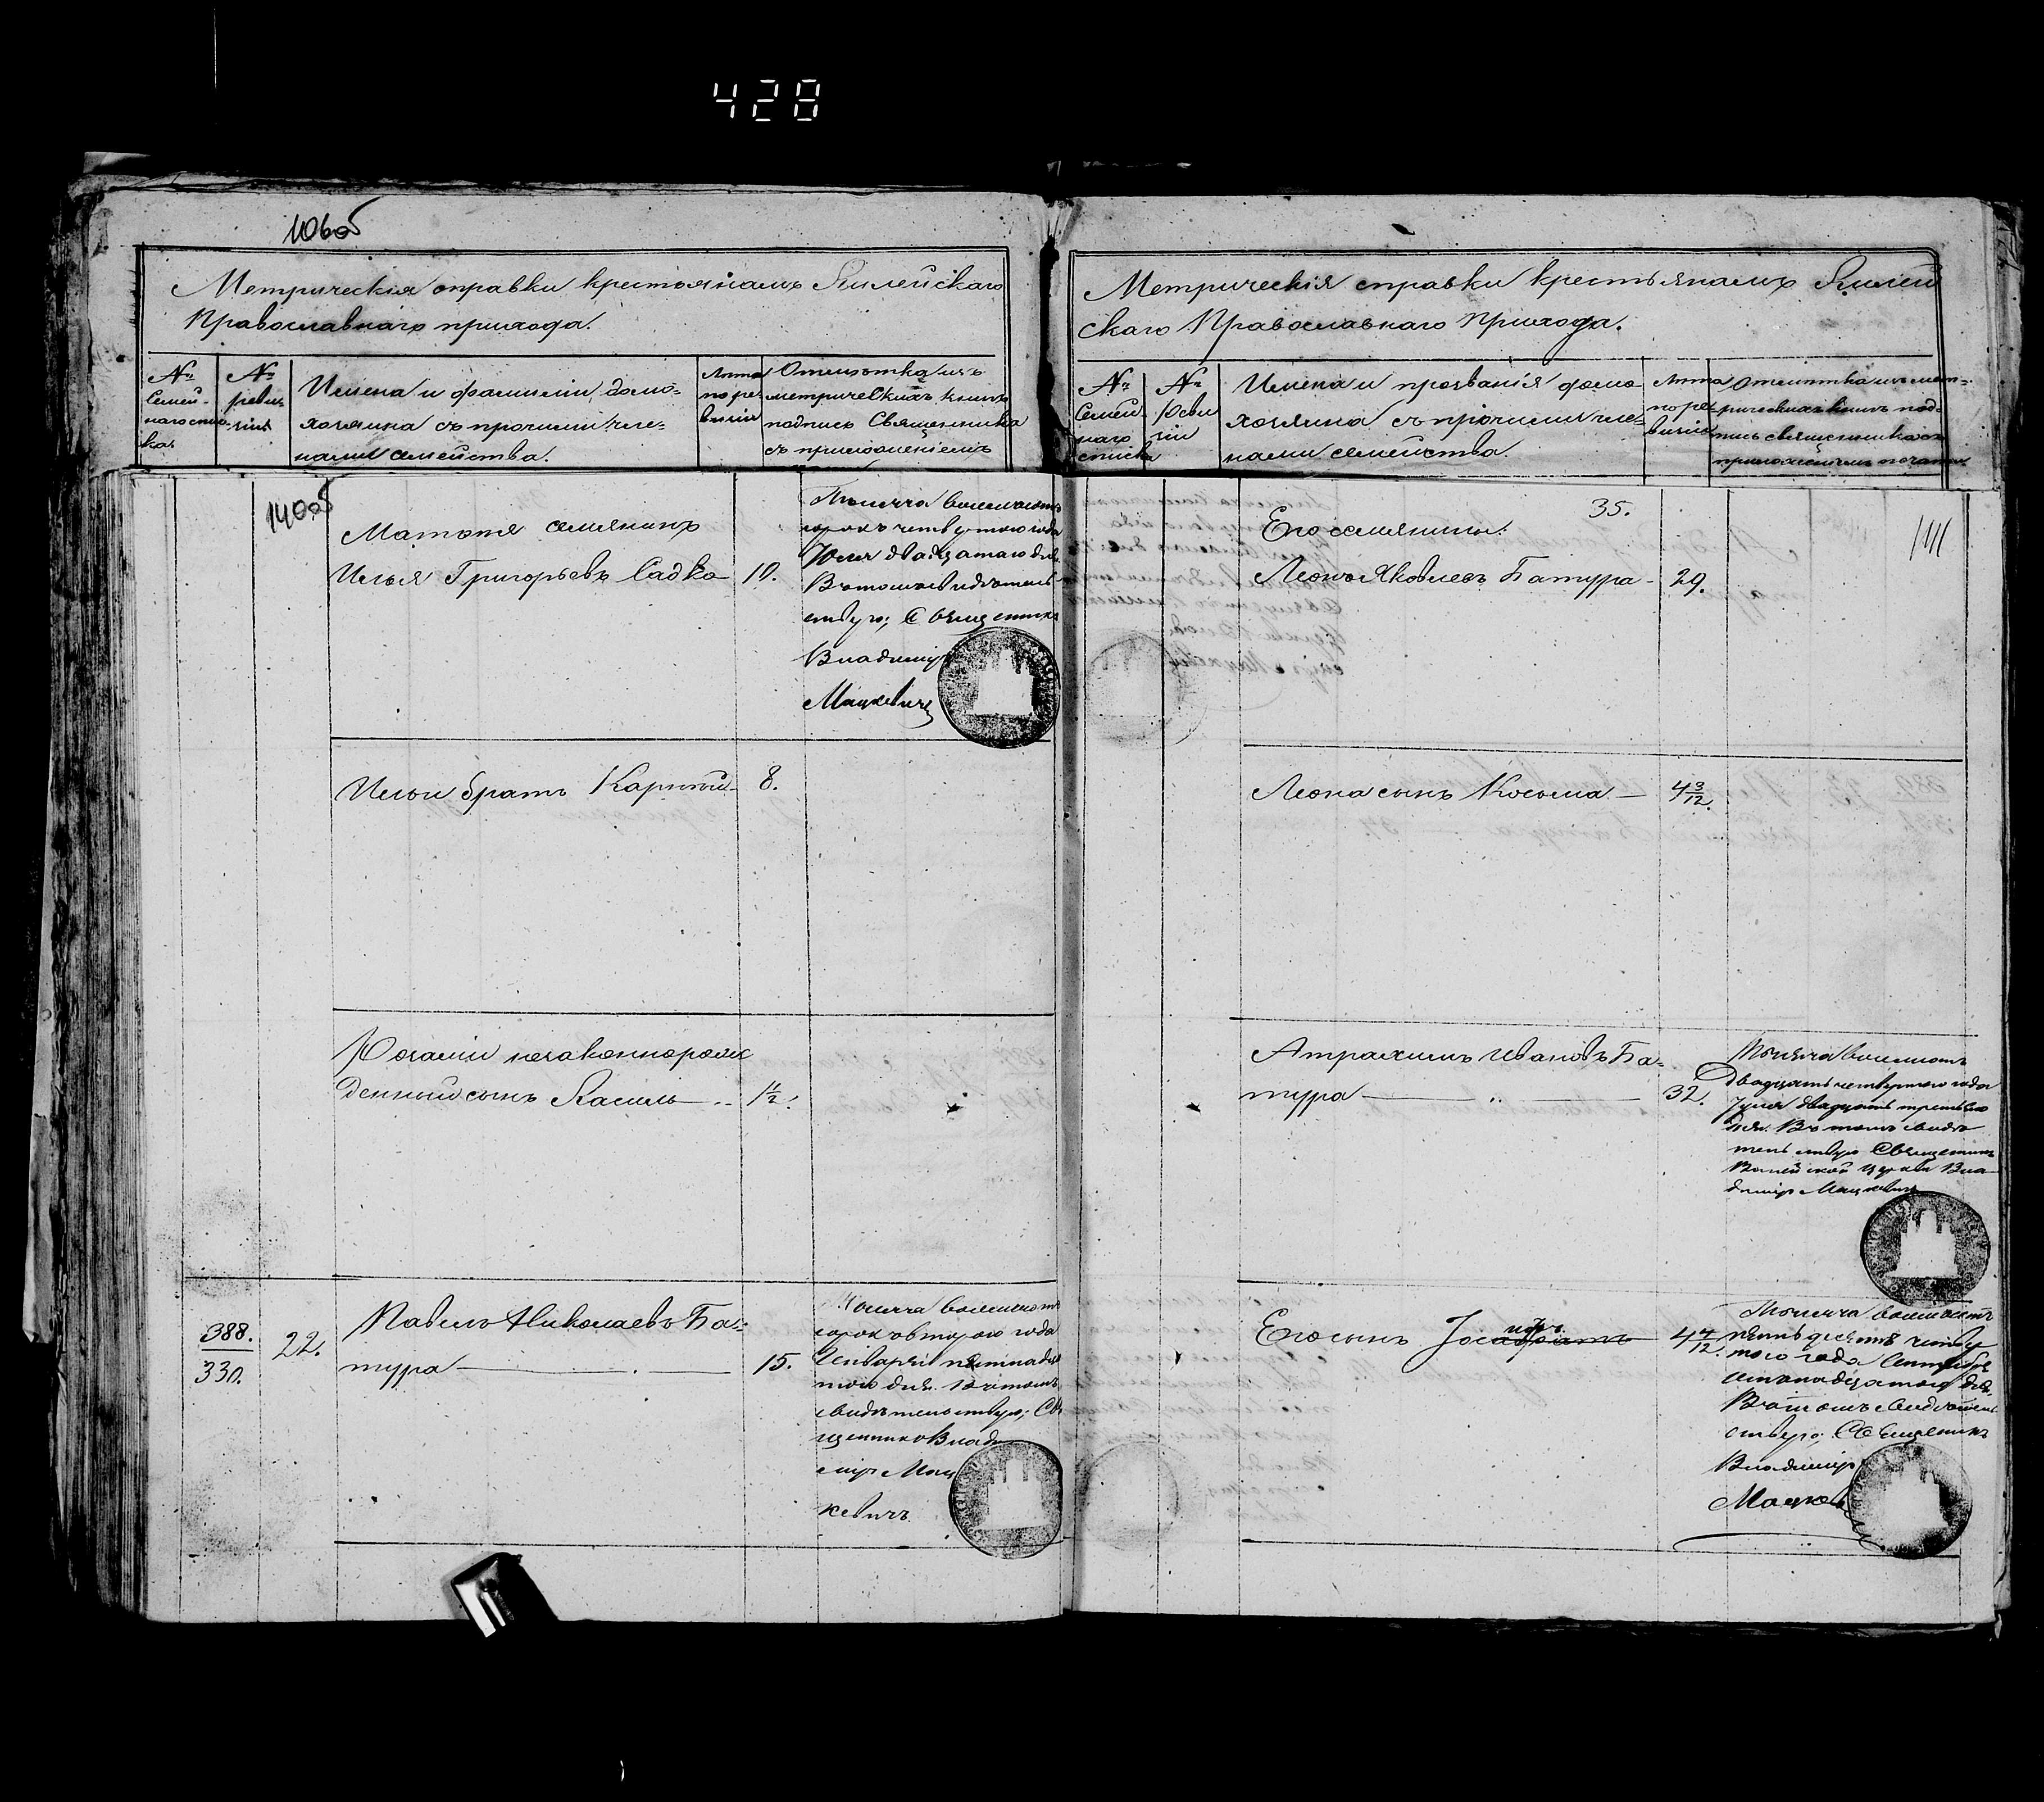 428
106об
Метрическія справки крестьянамъ Вилейскаго
Православнаго прихода.
№ Семейнаго списка
№ ревизіи
Имена и фамиліи домо-
хозяина съ прочими чле-
нами семейства.
Лѣта по ревизіи
Отмѣтка изъ
метрическихъ книгъ
подпись Священника
съ приложеніемъ
140об
Матвѣя семянинъ
Илья Григорьевъ Садко 10.
Тысяча восемьсотъ
сорокъ четвертого года
Юля двадцатаго дня
Въ томъ свидѣтель-
ствую; Священникъ
Владиміръ
Мацкевичъ
Ильи братъ 8.
незаконнорож
денный сынъ Василь 1 1/2.
388.
330.
22.
Павелъ Николаевъ Ба-
тура 15.
Тысяча восемьсотъ
сорокъ второго года
Генваря пятнадца
того дня. Въ томъ
свидѣтельствую; Свя
щенникъ Влади
міръ Мац
кевичъ
Метрическія справки крестьянамъ Вилей
скаго Православнаго Прихода.
№ Семей
наго
списка
№ Реви
зіи
Имена и прозванія домо-
хозяина съ прочими чле-
нами семейства.
Лѣта
по ре-
визіи
Отмѣтка изъ мет-
рическихъ книгъ под-
пись священника съ
приложеніемъ печати
35.
141
Его семянины:
Леонъ Яковлевъ Батура 29.
Леона сынъ Косьма 4 3/12.
Атрахимъ Ивановъ Ба-
тура 32.
Тысяча восемьсотъ
Двадцать четвертого года
Іуля двадцать третьяго
дня. Въ томъ свидѣ
тельствую Священникъ
Вилейской Церкви Вла-
диміръ Мацкевичъ
Его сынъ 4 4/12.
Тысяча восемьсотъ
пятьдесятъ четвер
того года Сентября
дня.
Въ томъ свидѣтель
ствую; Священникъ
Владиміръ
Мацкев